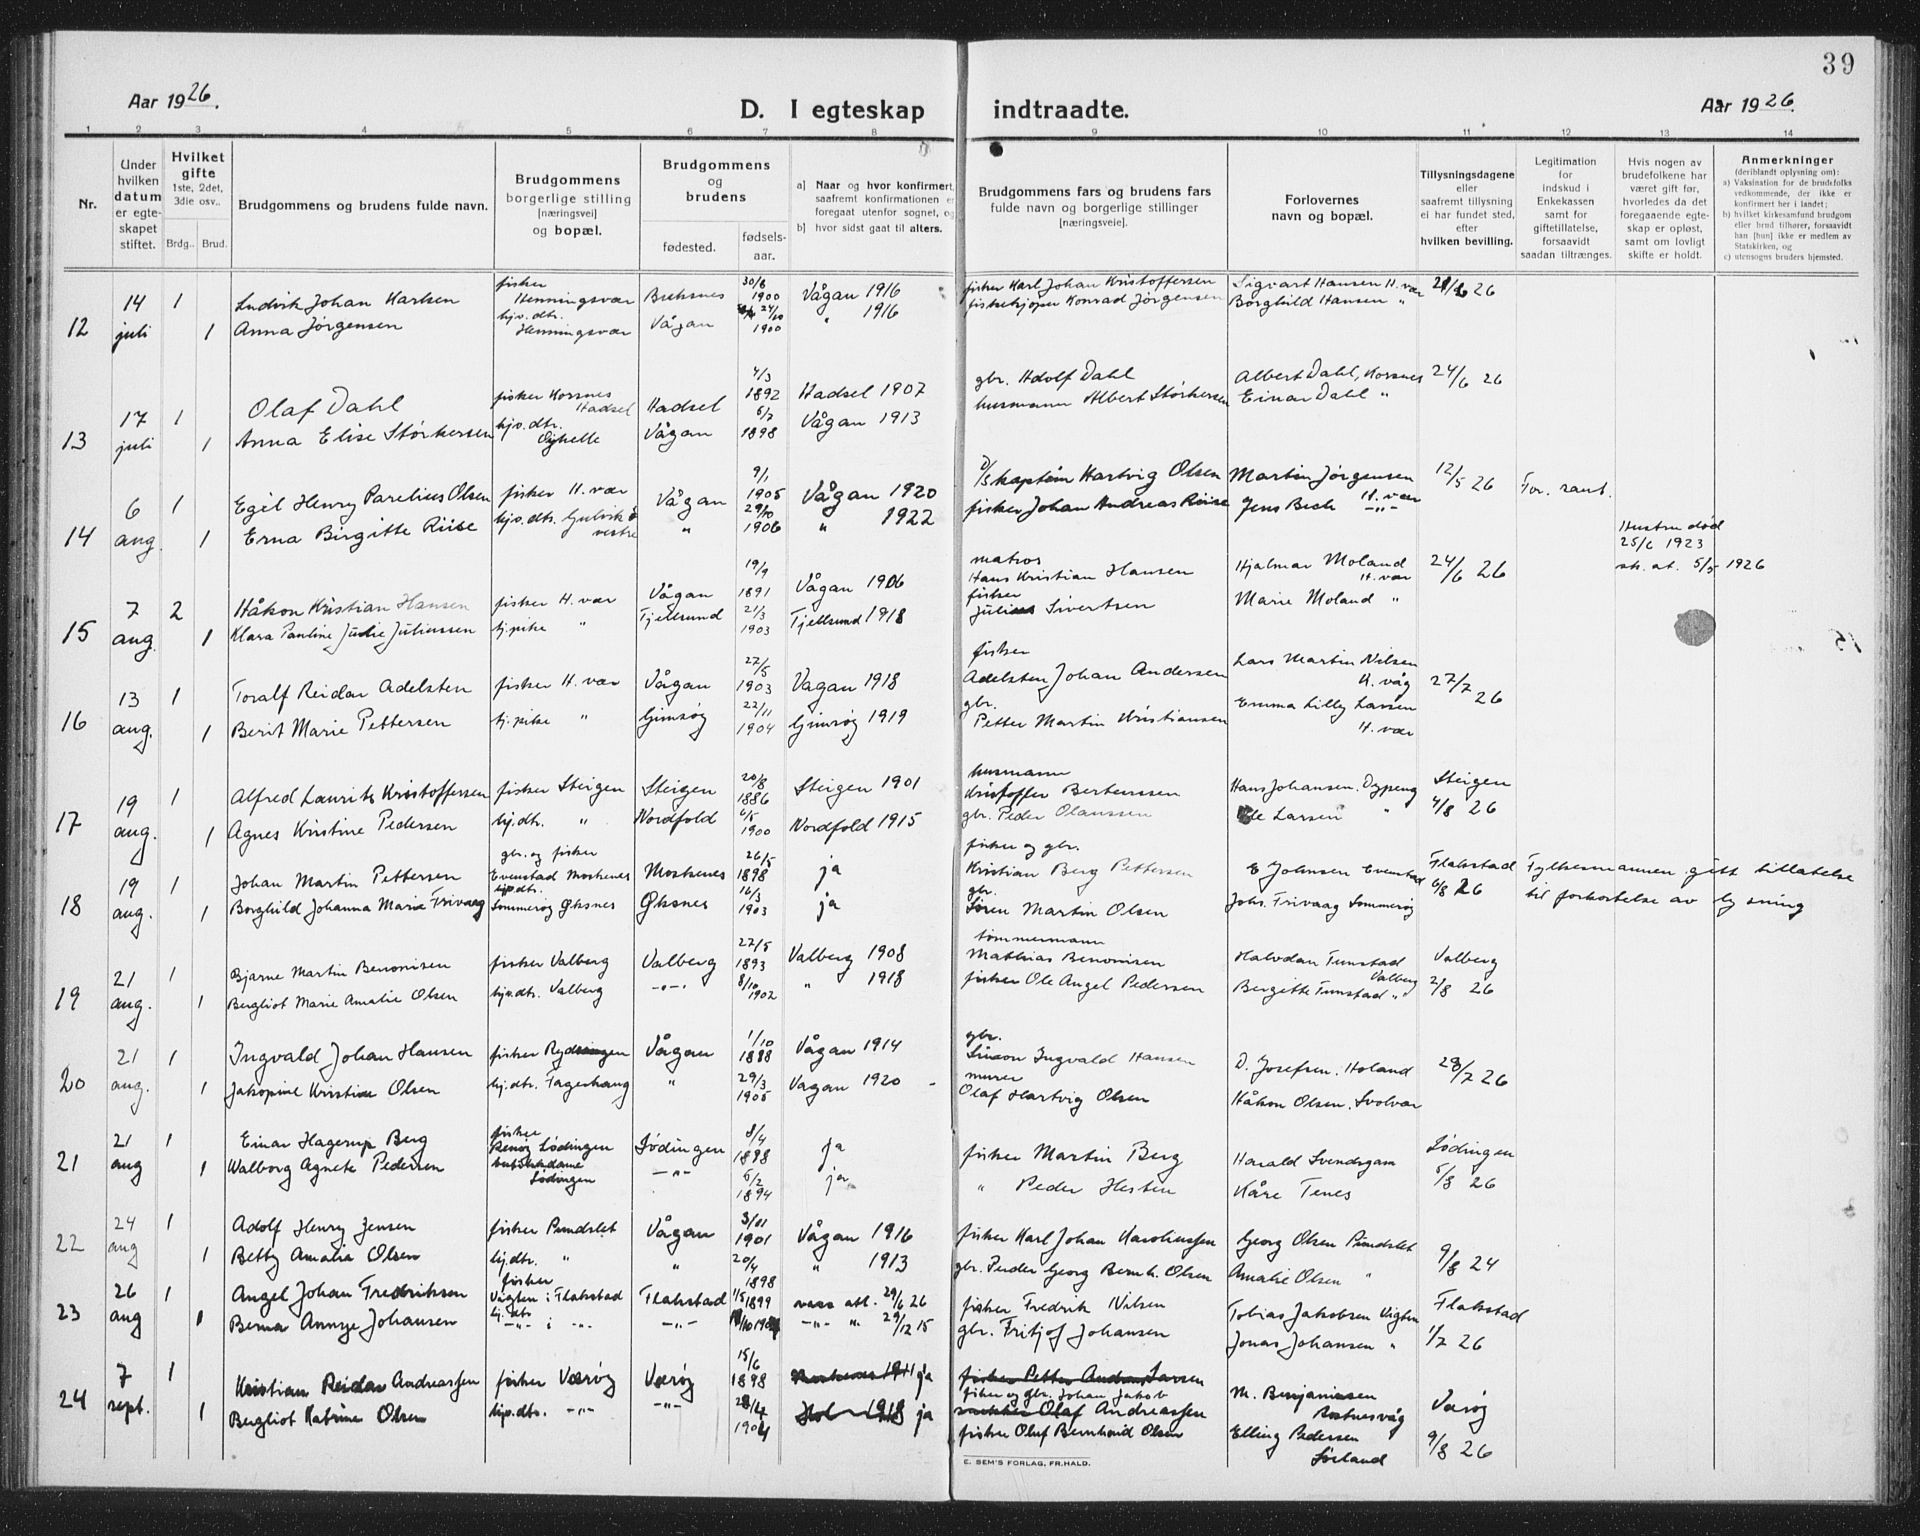 39
Aar 1926.
D. I egteskap indtraadte.
Aar 1926.
1 2 3 4 5 6 7 8 9 10 11 12 13 14
Nr.
Under hvilken datum er egteskapet stiftet.
Hvilket gifte 1ste, 2det, 3die osv..
Brdg.. Brud.
Brudgommens og brudens fulde navn.
Brudgommens borgerlige stilling [næringsvei] og bopæl.
Brudgommens og brudens
fødested. fødselsaar.
a] Naar og hvor konfirmert, saafremt konfirmationen er foregaat utenfor sognet, og
b] hvor sidst gaat til alters.
Brudgommens fars og brudens fars fulde navn og borgerlige stillinger [næringsveie].
Forlovernes navn og bopæl.
Tillysningsdagene eller saafremt tillysning ei har fundet sted, efter hvilken bevilling.
Legitimation for indskud i Enkekassen samt for giftetillatelse, forsaavidt saadan tiltrænges.
Hvis nogen av brudefolkene har været gift før, hvorledes da det foregaaende egteskap er opløst, samt om lovlig skifte er holdt.
Anmerkninger (deriblandt oplysning om):
a) Vaksination for de brudefolks vedkommende, der ikke er konfirmert her i landet;
b) hvilket kirkesamfund brudgom eller brud tilhører, forsaavidt han [hun] ikke er medlem av Statskirken, og
c) utensogns bruders hjemsted.
12 14 juli 1 Ludvik Johan Karlsen fisker Henningsvær Breksnes 30/8 1900 Vågan 1916 fisker Karl Johan Kristoffersen Sigvart Hansen H. vær 26
1 Anna Jørgensen hjv. dtr. Henningsvær Vågan 24/10 1900 " 1916 fiskekjøper Konrad Jørgensen Borghild Hansen "
13 17 juli 1 Olaf Dahl fisker Korsnes Hadsel Hadsel 4/3 1892 Hadsel 1907 gbr. Adolf Dahl Albert Dahl, Korsnes 24/6 26
1 Anna Elise Størkersen hjv. dtr. Vågan 1898 Vågan 1913 husmann Albert Størkersen Einar Dahl "
14 6 aug. 1 Egil Henry Parelius Olsen fisker H. vær Vågan 9/1 1905 Vågan 1920 D/S kaptein Hartvig Olsen Martin Jørgensen H. vær 12/5 26 For. samt.
1 Erna Birgitte Riise hjv. dtr. vestre " 29/10 1906 " 1922 fisker Johan Andreas Riise Jens Bech -"-
15 7 aug. 2 Håkon Kristian Hansen fisker H. vær Vågan 19/9 1891 Vågan 1906 matros Hans Kristian Hansen Hjalmar Moland H. vær 24/6 26 Hustru død 25/6 1923 sk. at. 5/5 1926
1 Klara Pauline Julie Juliussen tj. pike " Tjellsund 21/3 1903 Tjellsund 1918 fisker Julius Sivertsen Marie Moland "
16 13 aug. 1 Toralf Reidar Adelsten fisker H. vær Vågan 27/5 1903 Vagan 1918 fisker Adelsten Johan Andersen Lars Martin Nilsen H. våg 27/7 26
1 Berit Marie Pettersen tj. pike " Gimsøy 22/11 1904 Gimsøy 1919 gbr. Petter Martin Kristiansen Emma Lilly Larsen H. vær
17 19 aug. 1 Alfred Laurits Kristoffersen fisker Steigen Steigen 20/8 1886 Steigen 1901 husmann Kristoffer Berteussen Hans Johansen. Dypeng Steigen 4/8 26
1 Agnes Kristine Pedersen hj. dtr. " Nordfold 6/5 1900 Nordfold 1915 gbr. Peder Olaussen Ole Larsen "
18 19 aug. 1 Johan Martin Pettersen gbr. og fisker Evenstad Moskenes Moskenes 26/5 1898 ja fisker og gbr. Kristian Berg Pettersen E Johnsen Evenstad Flakstad 6/8 26 Fylkesmannen gitt tillatelse til forkortelse av lysning
1 Borghild Johanna Marie Trivaag hjv. dtr. Sommerøy Øksnes Øksnes 16/3 1903 ja gbr. Søren Martin Olsen Johs. Trivaag Sommerøy
19 21 aug. 1 Bjarne Martin Benonisen fisker Valberg Valberg 27/5 1893 Valberg 1908 tømmermann Mathias Benonisen Halvdan Tunstad Valberg Valberg 2/8 26
1 Bergliot Marie Amalie Olsen hjv. dtr. Valberg -"- 8/10 1902 " 1918 fisker Ole Angel Pedersen Bergitte Tunstad "
20 21 aug. 1 Ingvald Johan Hansen fisker Vågan 1/10 1888 Vågan 1914 gbr. Simon Ingvald Hansen D. Josefsen. Holand 28/7 26
1 Jakopine Kristine Olsen hj. dtr. Vagan 29/3 1905 Vagan 1920 murer Olaf Hartvig Olsen Håkon Olsen. Svolvær
21 21 aug 1 Einar Hagerup Berg fisker Lødingen Lødingen 8/4 1898 ja fisker Martin Berg Harald Svendsgam Lødingen 5/8 26
1 Walborg Agnete Pedersen Lødingen -"- 6/2 1894 ja " Peder Hesten Kåre Tenes
22 24 aug 1 Adolf Henry Jensen fisker Pundslet Vågan 3/11 1901 Vågan 1916 fisker Karl Johan Georg Olsen Pundslet 9/8 24
1 Betty Amalia Olsen hj. dtr. " " 20/4 1898 " 1913 gbr. Peder Georg Bernh. Olsen Amalie Olsen "
23 26 aug 1 Angel Johan Fredriksen fisker Vigten i Flakstad Flakstad 1/5 1899 vacc att. 29/6 26 fisker Fredrik Nilsen Tobias Jakobsen Vigten Flakstad 1/7 26
1 Berna Annye Johansen hj. dtr. -"- i -"- -"- -"- " 29/12 15 gbr. Fritjof Johansen Jonas Johansen "
24 7 sept. 1 Kristian Reidar Andreassen fisker Værøy Værøy 15/6 1898 ja fisker Petter Larsen fisker og gbr. Johan Jakob Andreassen M. Benjaminsen Værøy 9/8 26
1 Bergliot Katrine Olsen hjv. dtr. -"- -"- 28/4 1904 Hol 1918 ja fisker Oluf Bernhard Olsen Elling Pedersen Sørland
E. SEM'S FORLAG, FR.HALD.